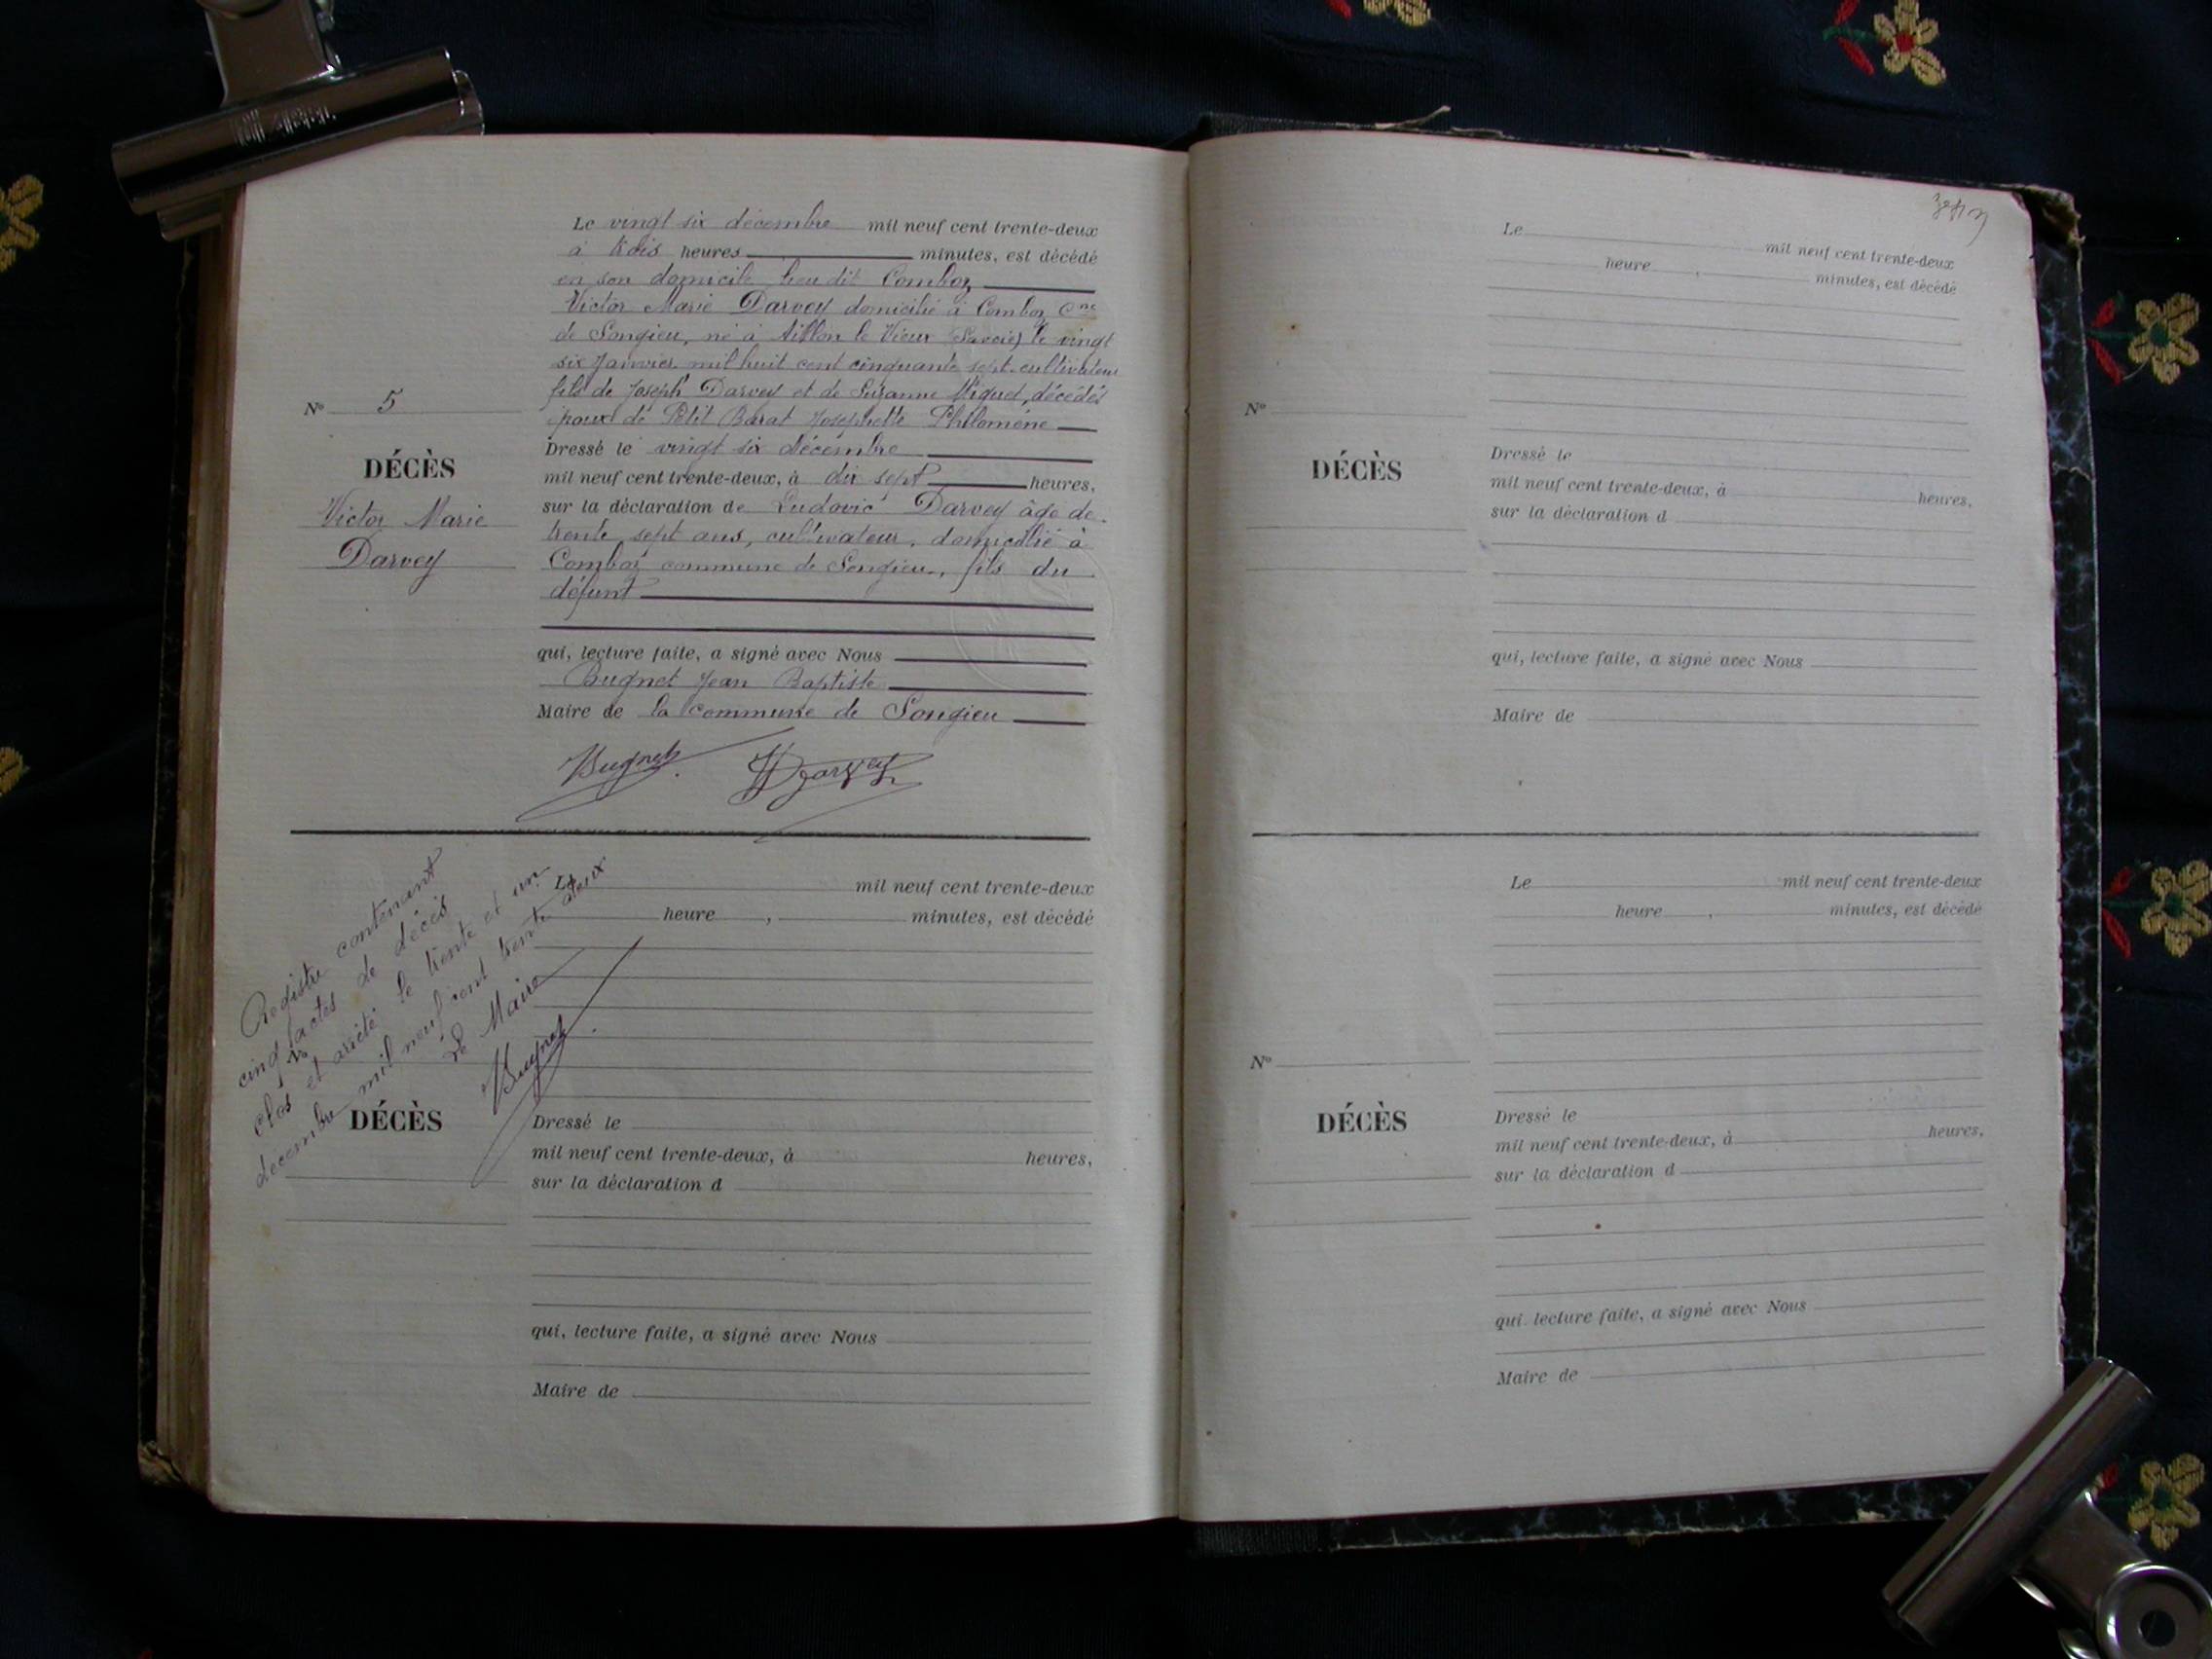 Le vingt six décembre mil neuf cent trente-deux
à trois heures minutes, est décédé
en son domicile lieu dit Comboz
Victor Marie Darvey domicilié à Comboz Cne
de Songieu, né à Aillon le Vieux (Savoie) le vingt
six Janvier mil huit cent cinquante sept cultivateur
fils de Joseph Darvey et de Suzanne Miguet, décédés
époux de Petit Barat Josephette Philomène
Dressé le vingt six décembre
mil neuf cent trente-deux, à dix sept heures,
sur la déclaration de Ludovic Darvey âgé de
trente sept ans, cultivateur, domicilié à
Comboz commune de Songieu, fils du
défunt
qui, lecture faite, a signé avec Nous
Bugnet Jean Baptiste
Maire de la commune de Songieu
Bugnet Darvey
N° 5
DÉCÈS
Victor Marie
Darvey
Registre contenant
cinq actes de décès
clos et arrêté le trente et un
décembre mil neuf cent trente deux
Le Maire
Bugnet
Le mil neuf cent trente-deux
heure , minutes, est décédé
N°
DÉCÈS
Dressé le
mil neuf cent trente-deux, à heures,
sur la déclaration d
qui, lecture faite, a signé avec Nous
Maire de
Le mil neuf cent trente-deux
heure , minutes, est décédé
N°
DÉCÈS
Dressé le
mil neuf cent trente-deux, à heures,
sur la déclaration d
qui, lecture faite, a signé avec Nous
Maire de
Le mil neuf cent trente-deux
heure , minutes, est décédé
N°
DÉCÈS
Dressé le
mil neuf cent trente-deux, à heures,
sur la déclaration d
qui, lecture faite, a signé avec Nous
Maire de